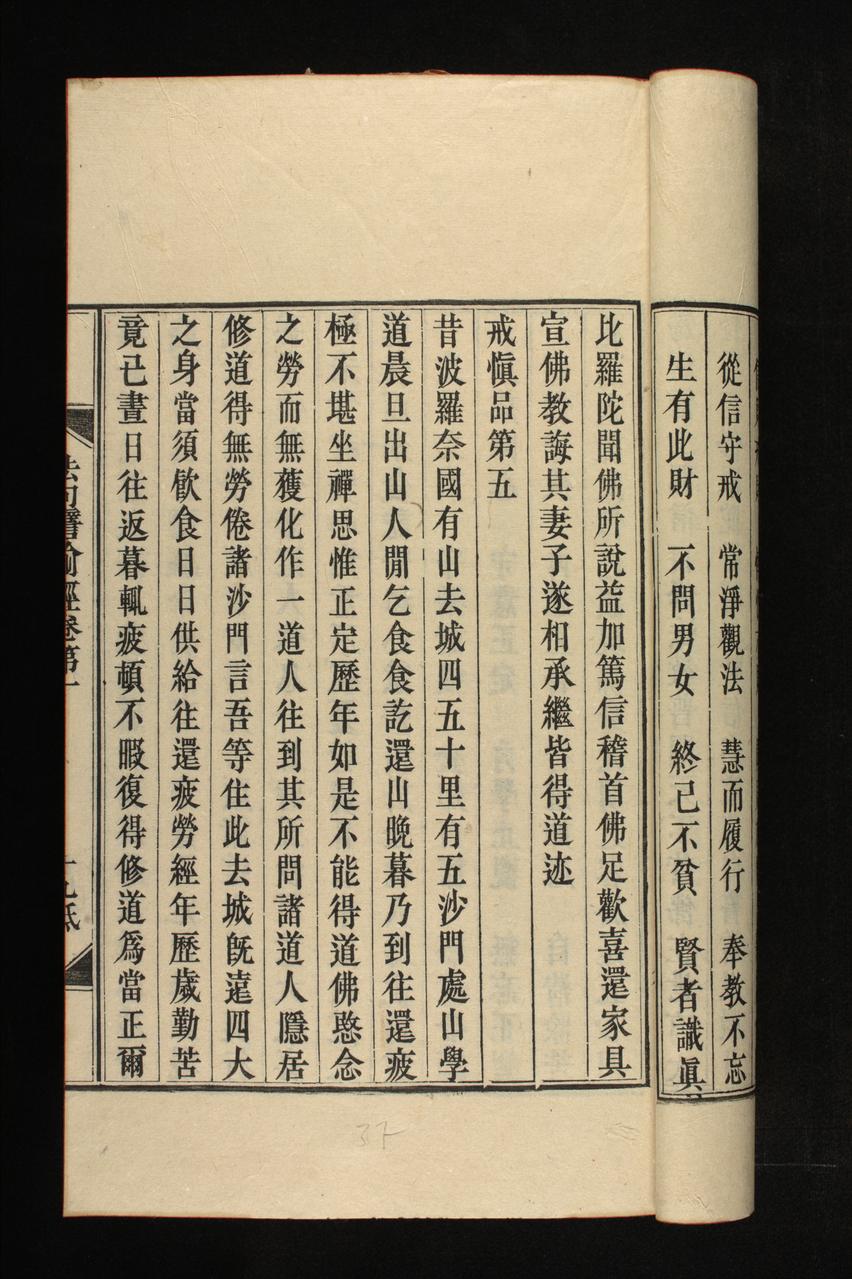 從信守戒　常淨觀法　慧而履行　奉教不忘
生有此財　不問男女　終己不貧　賢者識眞
比羅陀聞佛所說益加篤信稽首佛足歡喜還家具
宣佛教誨其妻子遂相承繼皆得道迹
戒愼品第五
昔波羅奈國有山去城四五十里有五沙門處山學
道晨旦出山人閒乞食食訖還山晚暮乃到往還疲
極不堪坐禪思惟正定歷年如是不能得道佛愍念
之勞而無獲化作一道人往到其所問諸道人隱居
修道得無勞倦諸沙門言吾等住此去城旣遠四大
之身當須飮食日日供給往還疲勞經年歷歲勤苦
竟已晝日往返暮輒疲頓不暇復得修道爲當正爾
法句譬喻經卷第一